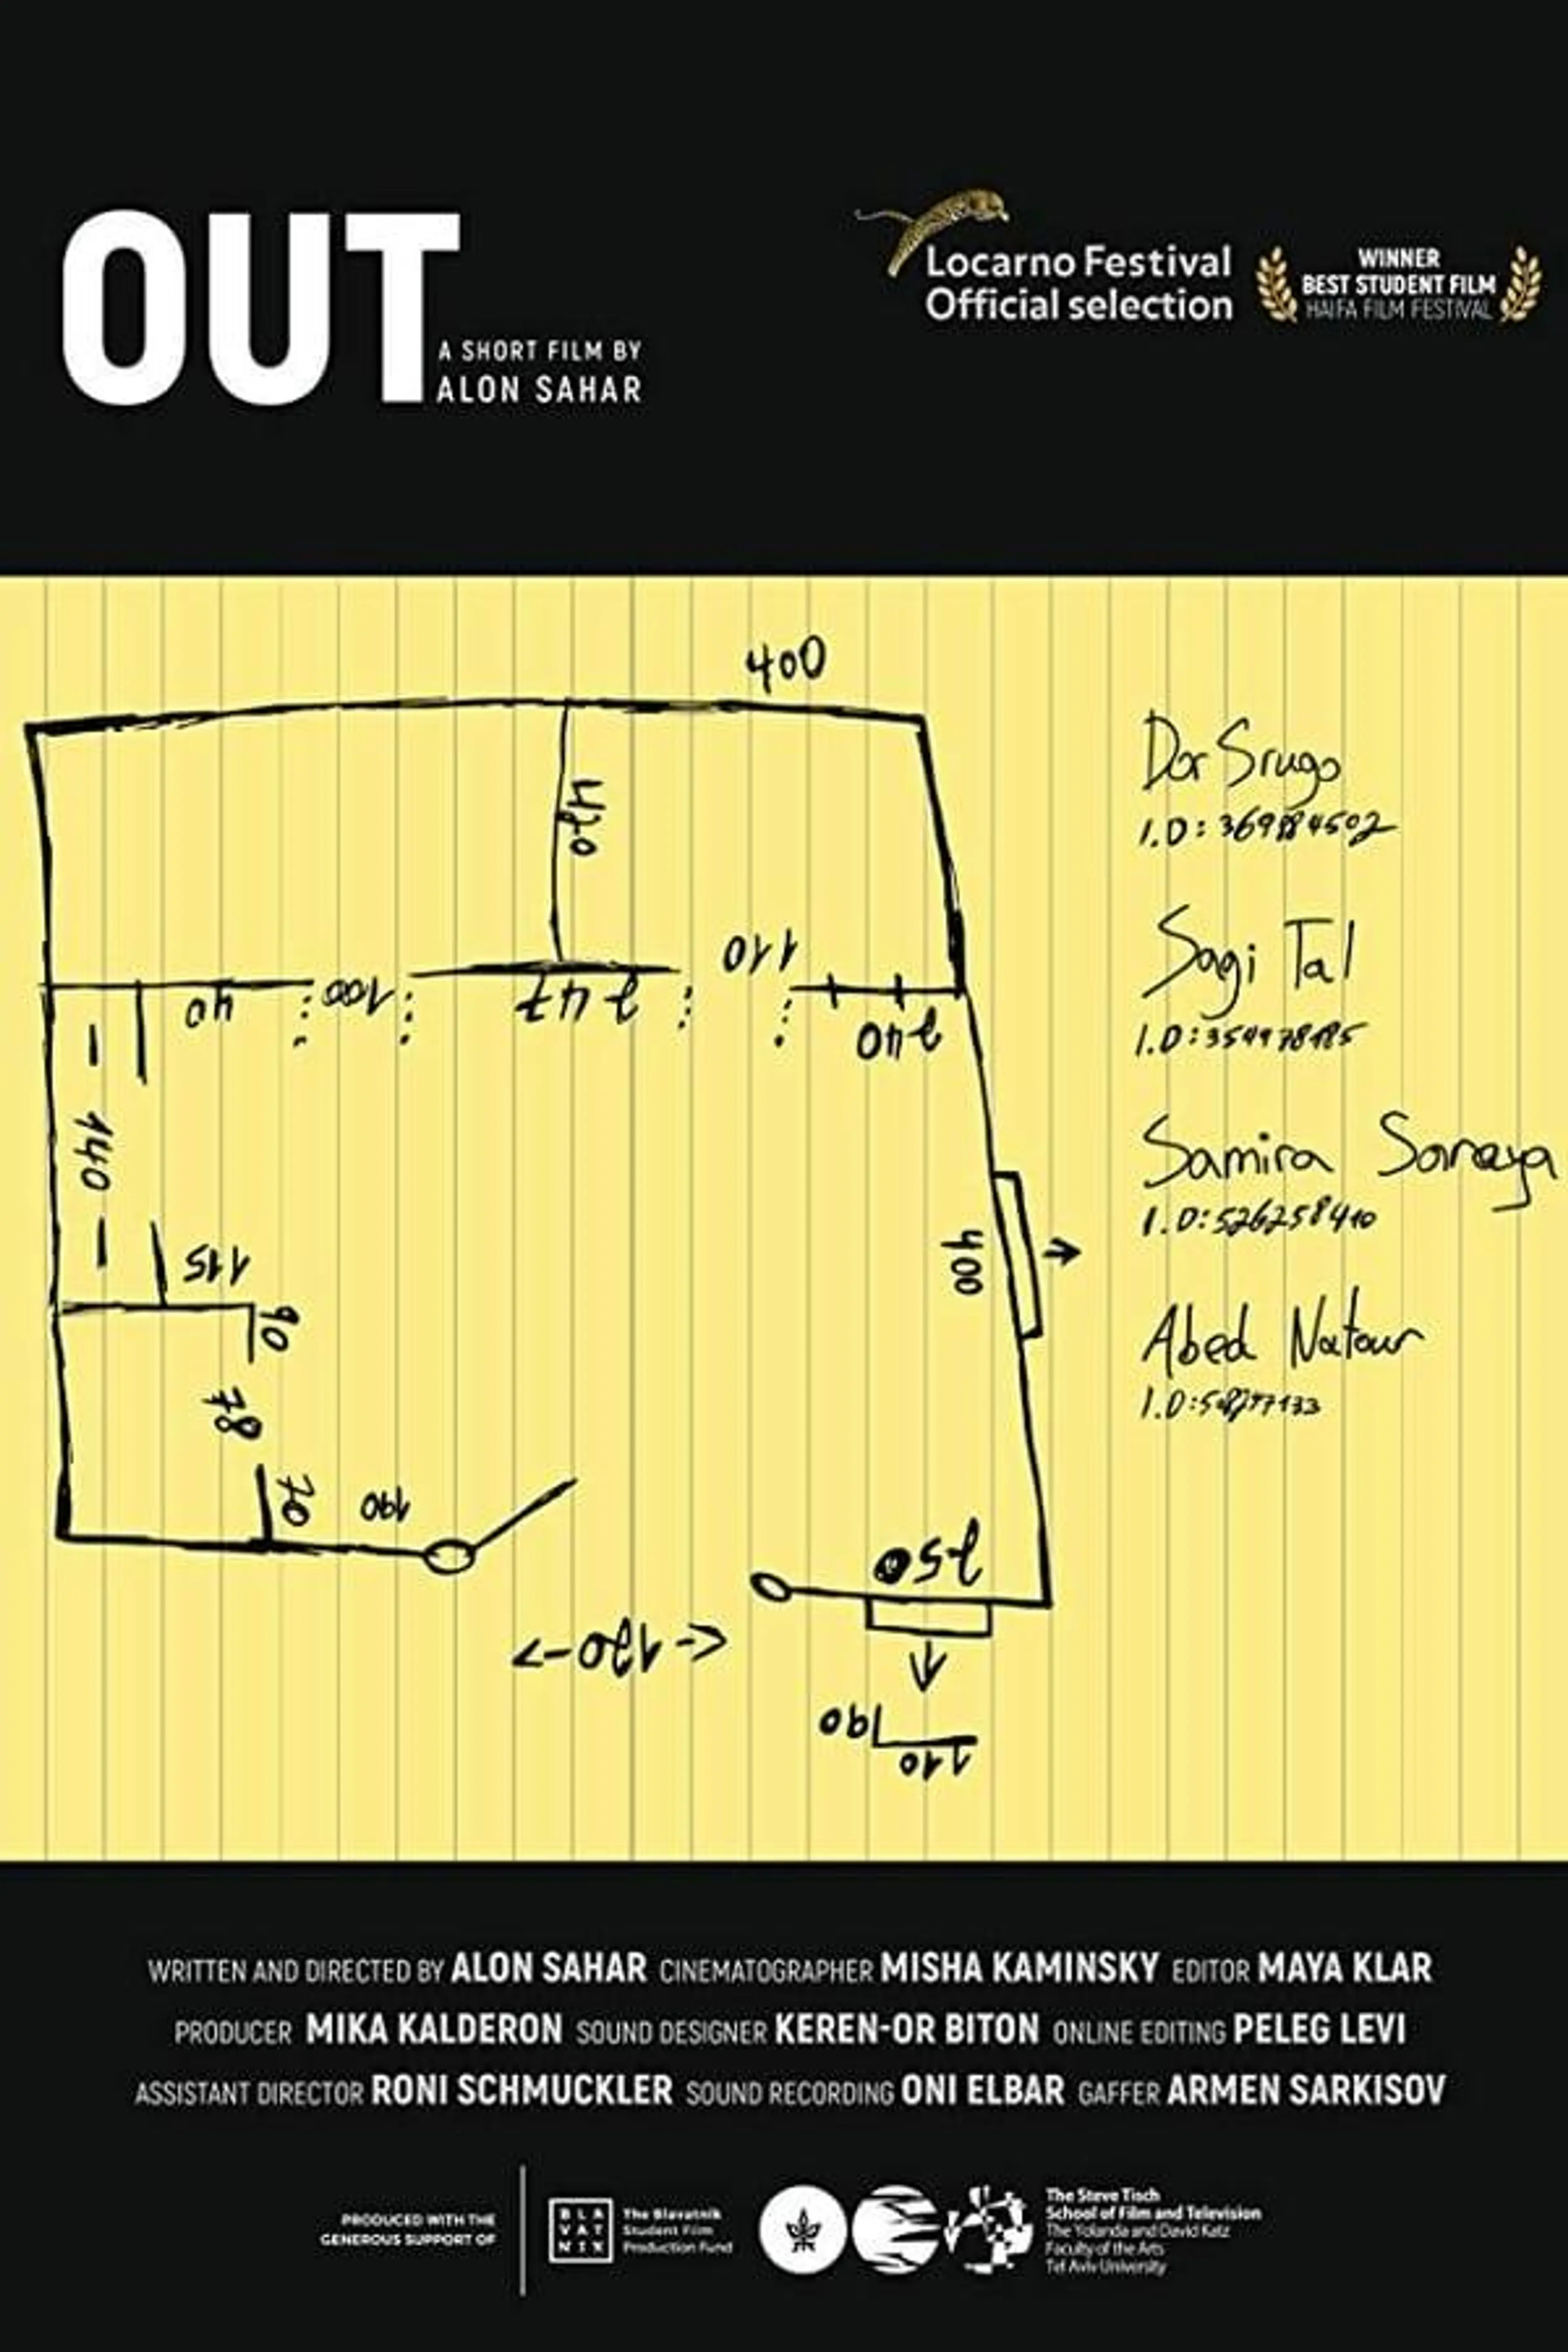 OUT
A SHORT FILM BY
ALON SAHAR
Locarno Festival
Official selection
WINNER
BEST STUDENT FILM
HAIFA FILM FESTIVAL
400
420
110
40
100
247
240
140
115
90
78
70
190
400
250
<-120->
190
110
Dor Srugo
I.D:
Sagi Tal
I.D:
Samira Saraya
I.D:526258410
Abed Natour
I.D:
WRITTEN AND DIRECTED BY ALON SAHAR CINEMATOGRAPHER MISHA KAMINSKY EDITOR MAYA KLAR
PRODUCER MIKA KALDERON SOUND DESIGNER KEREN-OR BITON ONLINE EDITING PELEG LEVI
ASSISTANT DIRECTOR RONI SCHMUCKLER SOUND RECORDING ONI ELBAR GAFFER ARMEN SARKISOV
PRODUCED WITH THE
GENEROUS SUPPORT OF
BLA
VAT
NIK
The Blavatnik
Student Film
Production Fund
The Steve Tisch
School of Film and Television
The Yolanda and David Katz
Faculty of the Arts
Tel Aviv University